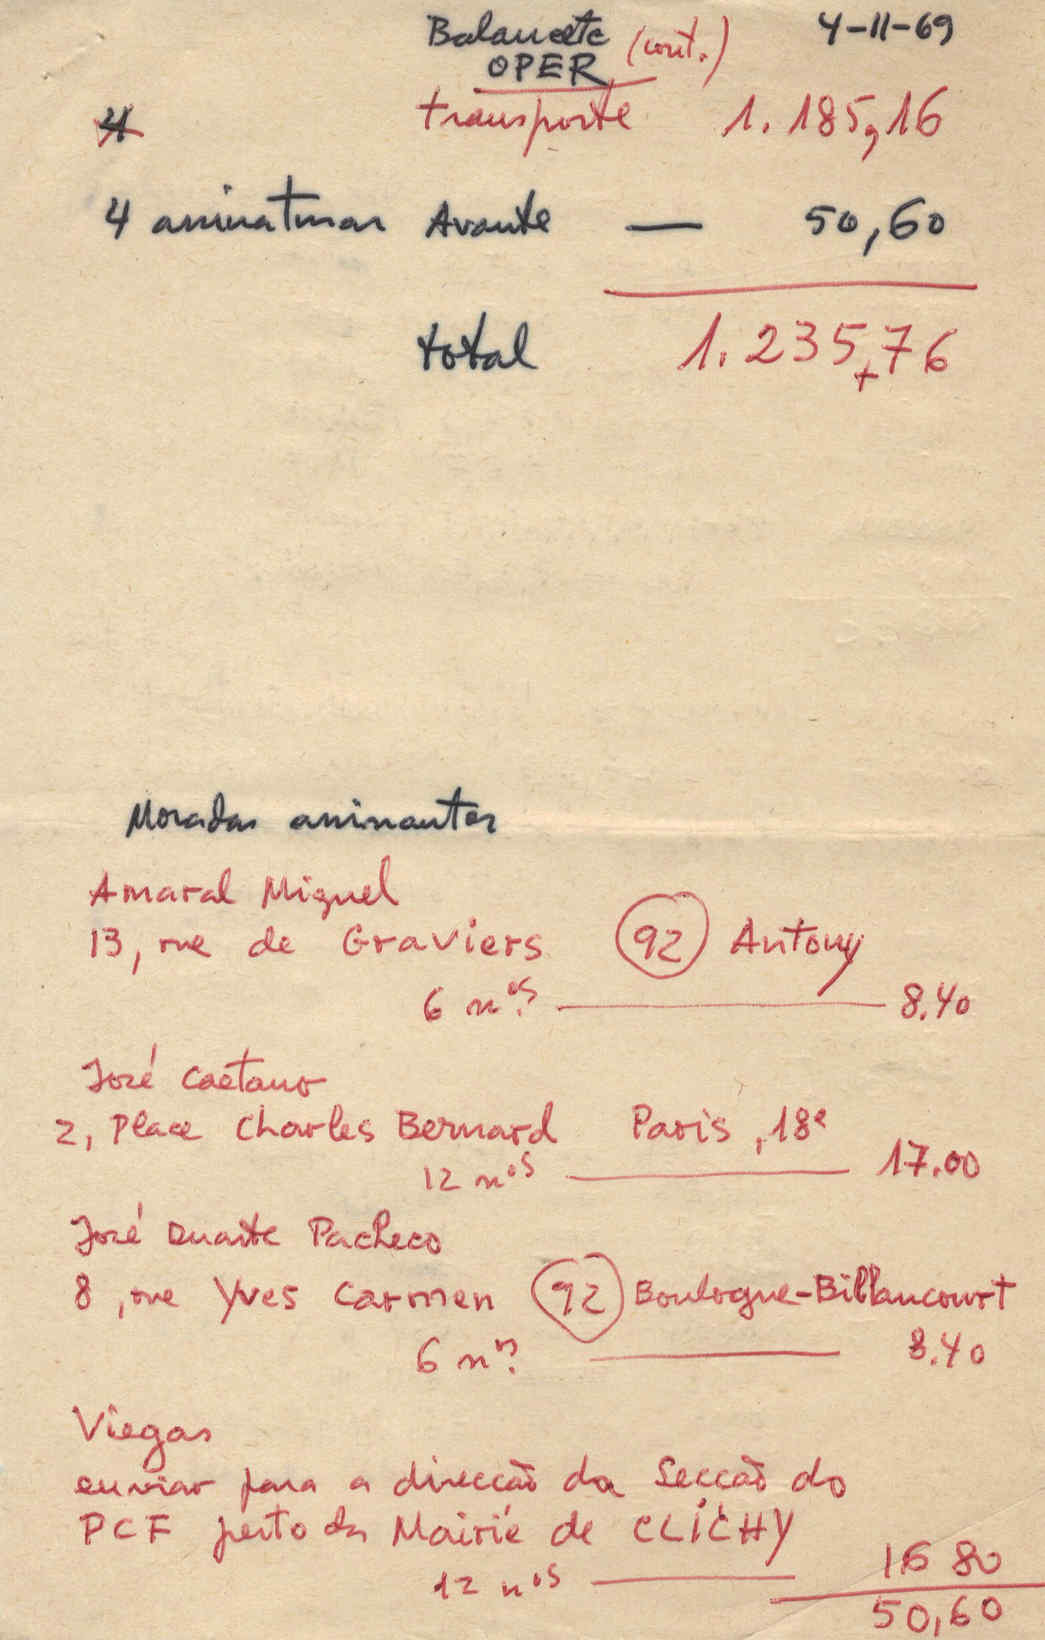 Balancete (cont.) 4-11-69
OPER
4 transporte 1.185,16
4 assinaturas Avante — 50,60
total 1.235,76
Moradas assinantes
Amaral Miguel
13, rue de Graviers 92 Antony
6 nos — 8.40
José Caetano
2, Place Charles Bernard Paris, 18e
12 nos — 17.00
José Duarte Pacheco
8, rue Yves Carmen 92 Boulogne-Billancourt
6 nos — 8.40
Viegas
enviar para a direccão da Seccão do
PCF perto da Mairie de CLICHY
12 nos — 16 80
50,60